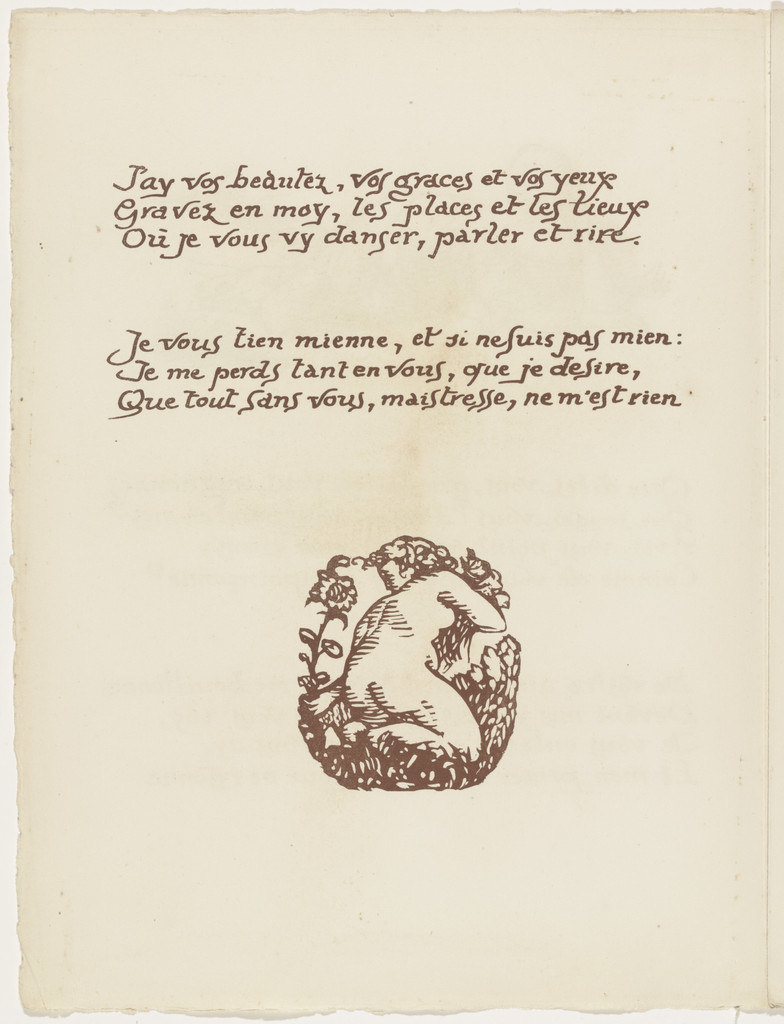 J'ay vos beautez, vos graces et vos yeux
Gravez en moy, les places et les lieux
Où je vous vy danser, parler et rire.
Je vous tien mienne, et si ne suis pas mien:
Je me perds tant en vous, que je desire,
Que tout sans vous, maistresse, ne m'est rien